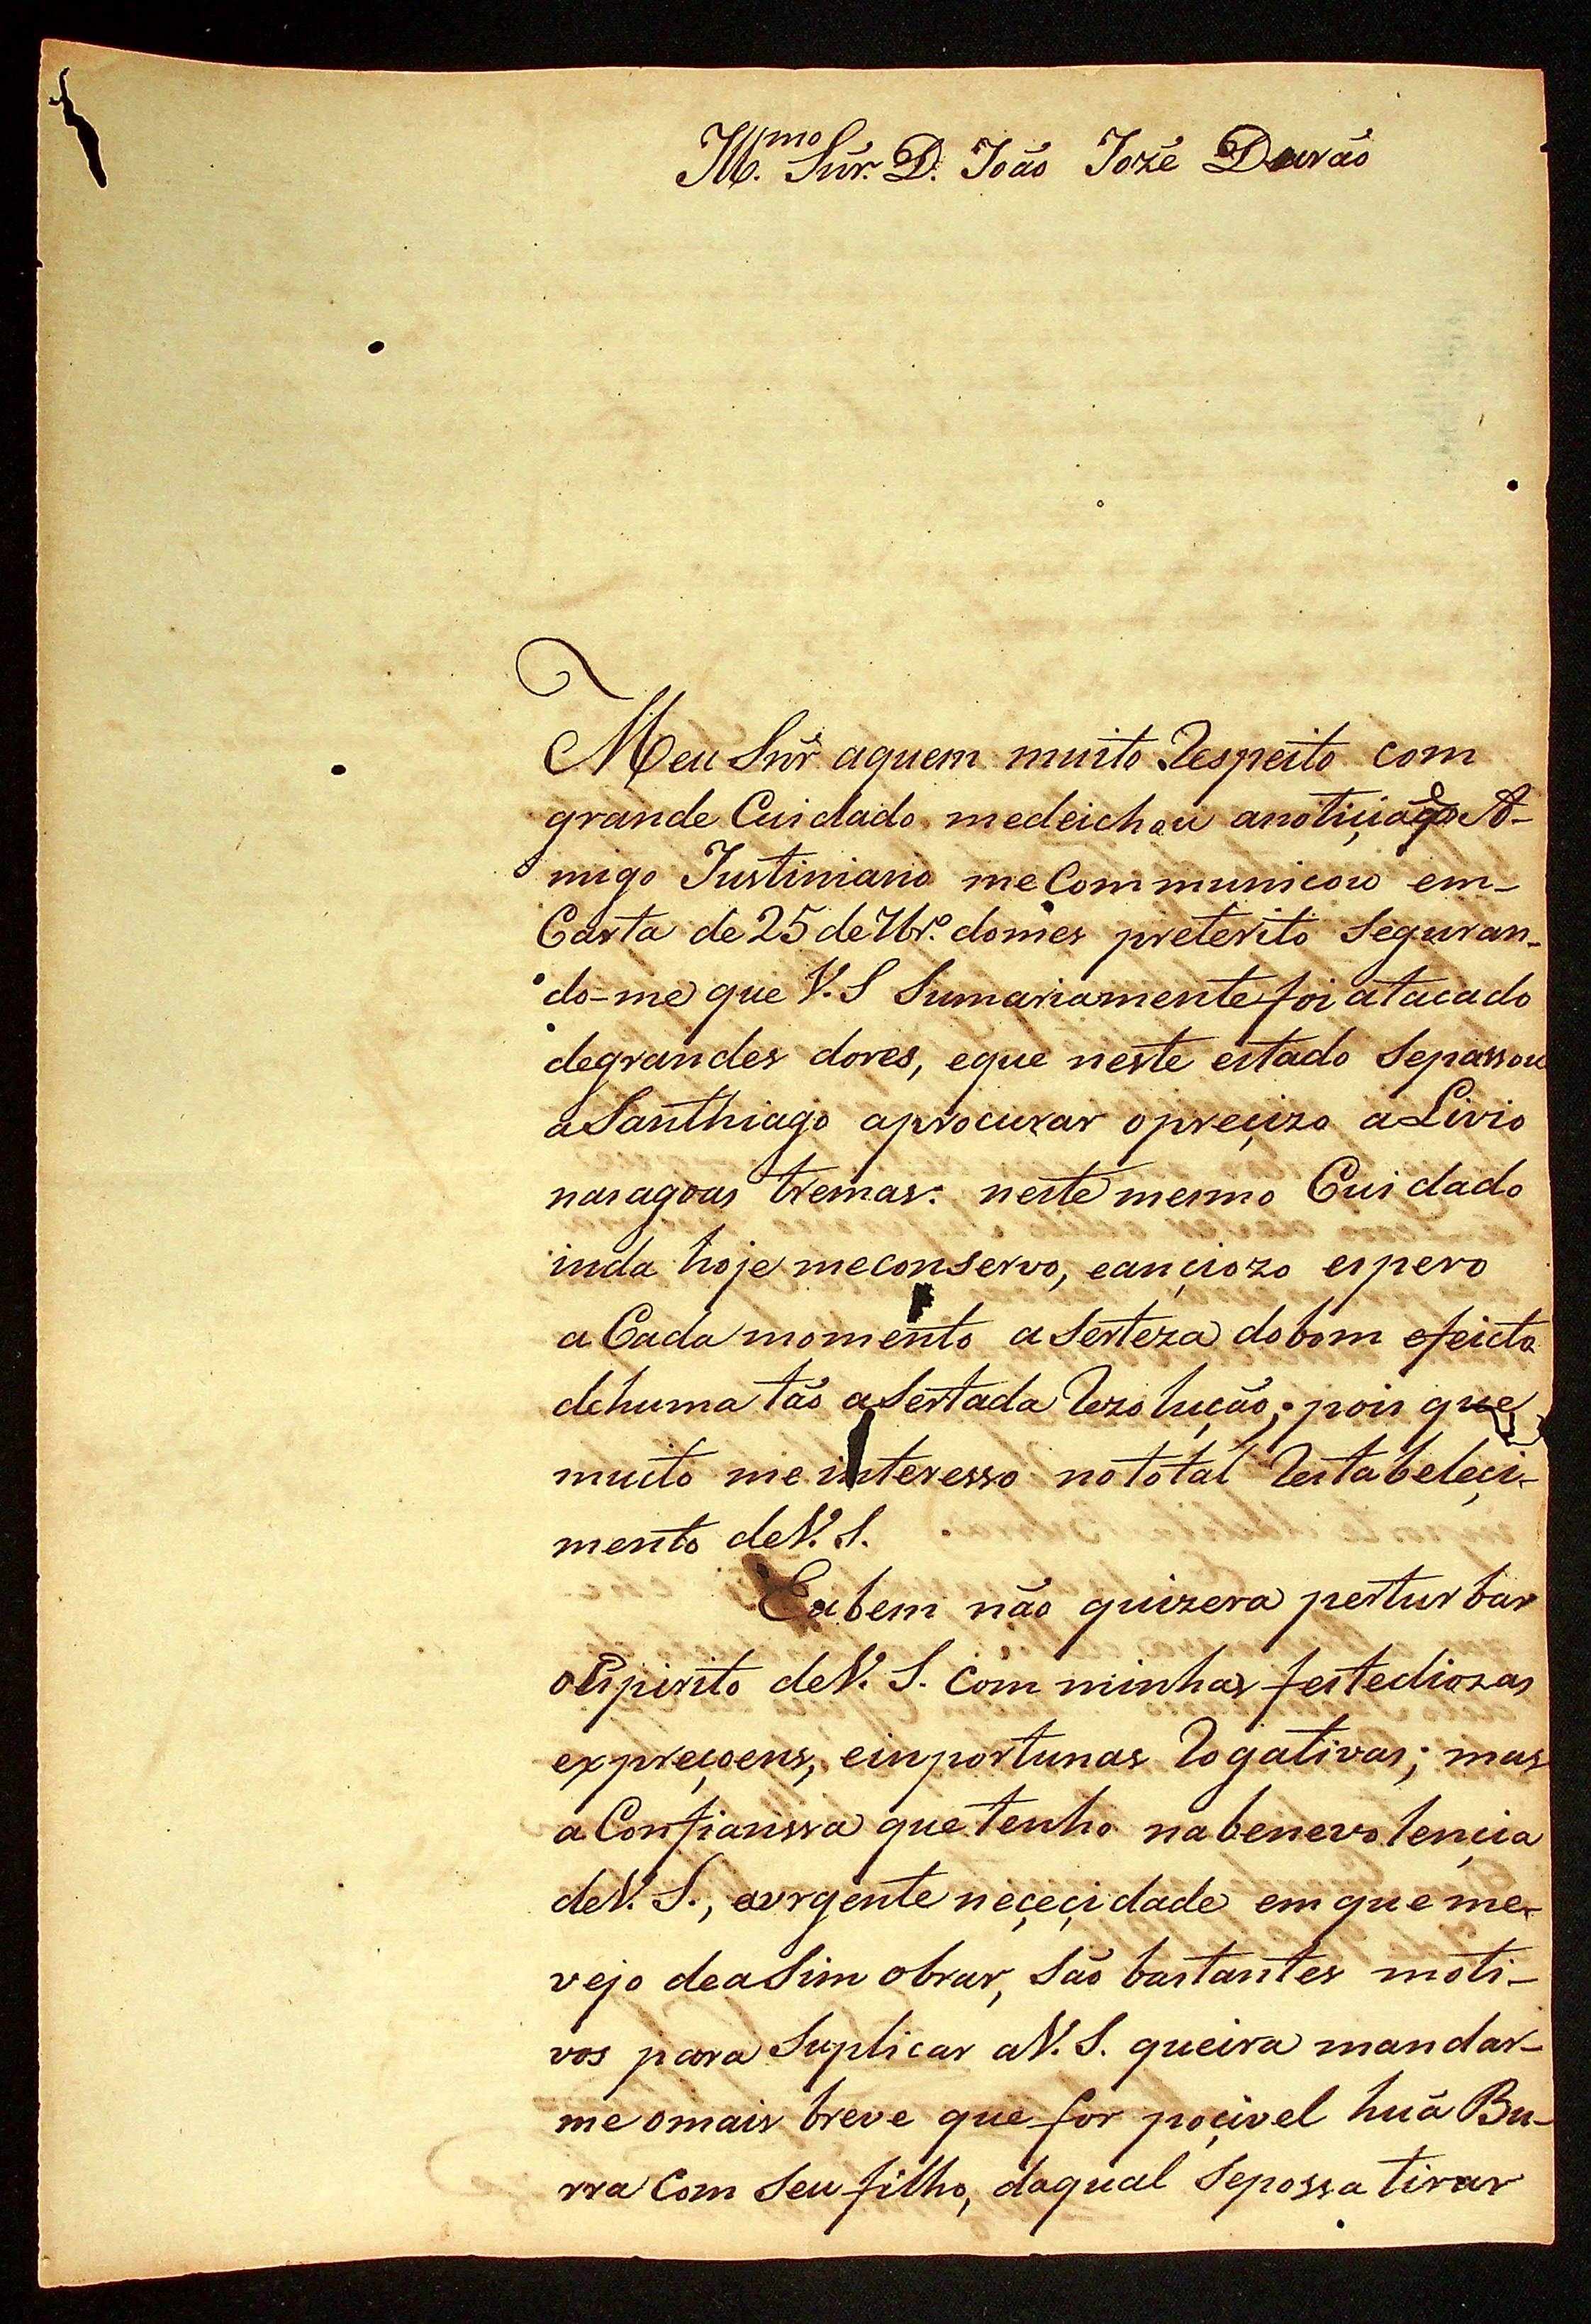 Ill.mo Snr. D. João Jozé Durão
Meu Snr aquem muito Respeito com
grande Cuidado medeichou anotiçia q̃ o A-
migo Justiniano me Communicou em-
Carta de 25 de 7br.o domes preterito Seguran-
do-me que V. S Sumariamente foi atacado
degrandes dores, eque neste estado Sepassou
a Santhiago aprocurar opreçizo aLivio
nas agoas tremas: neste mesmo Cuidado
inda hoje meconservo, eançiozo espero
a Cada momento a Serteza dobom efeicto
dehuma tão aSertada Rezolução; pois que
muito me interesso no total Restabeleçi-
mento deV. S.
Eu bem não quizera perturbar
oEspirito deV. S. Com minhas festediozas
expreçoens, einportunas Rogativas; mas
a Confianssa que tenho nabenevolençia
deV. S., aurgente neçeçidade em que me-
vejo deaSim obrar, São bastantes moti-
vos para Suplicar aV. S. queira mandar-
me omais breve que for poçivel huã Bu-
rra Com Seu filho, daqual Sepossa tirar